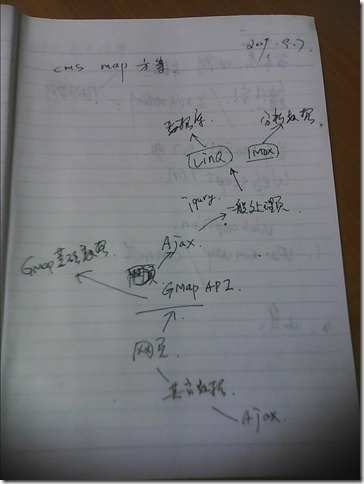 2009.9.7.
cms map 方案
数据库 分析数据
LinQ imox
jqury. 一般处理页
Ajax.
Gmap 基础数据
GMap API.
网页.
其它数据
Ajax.